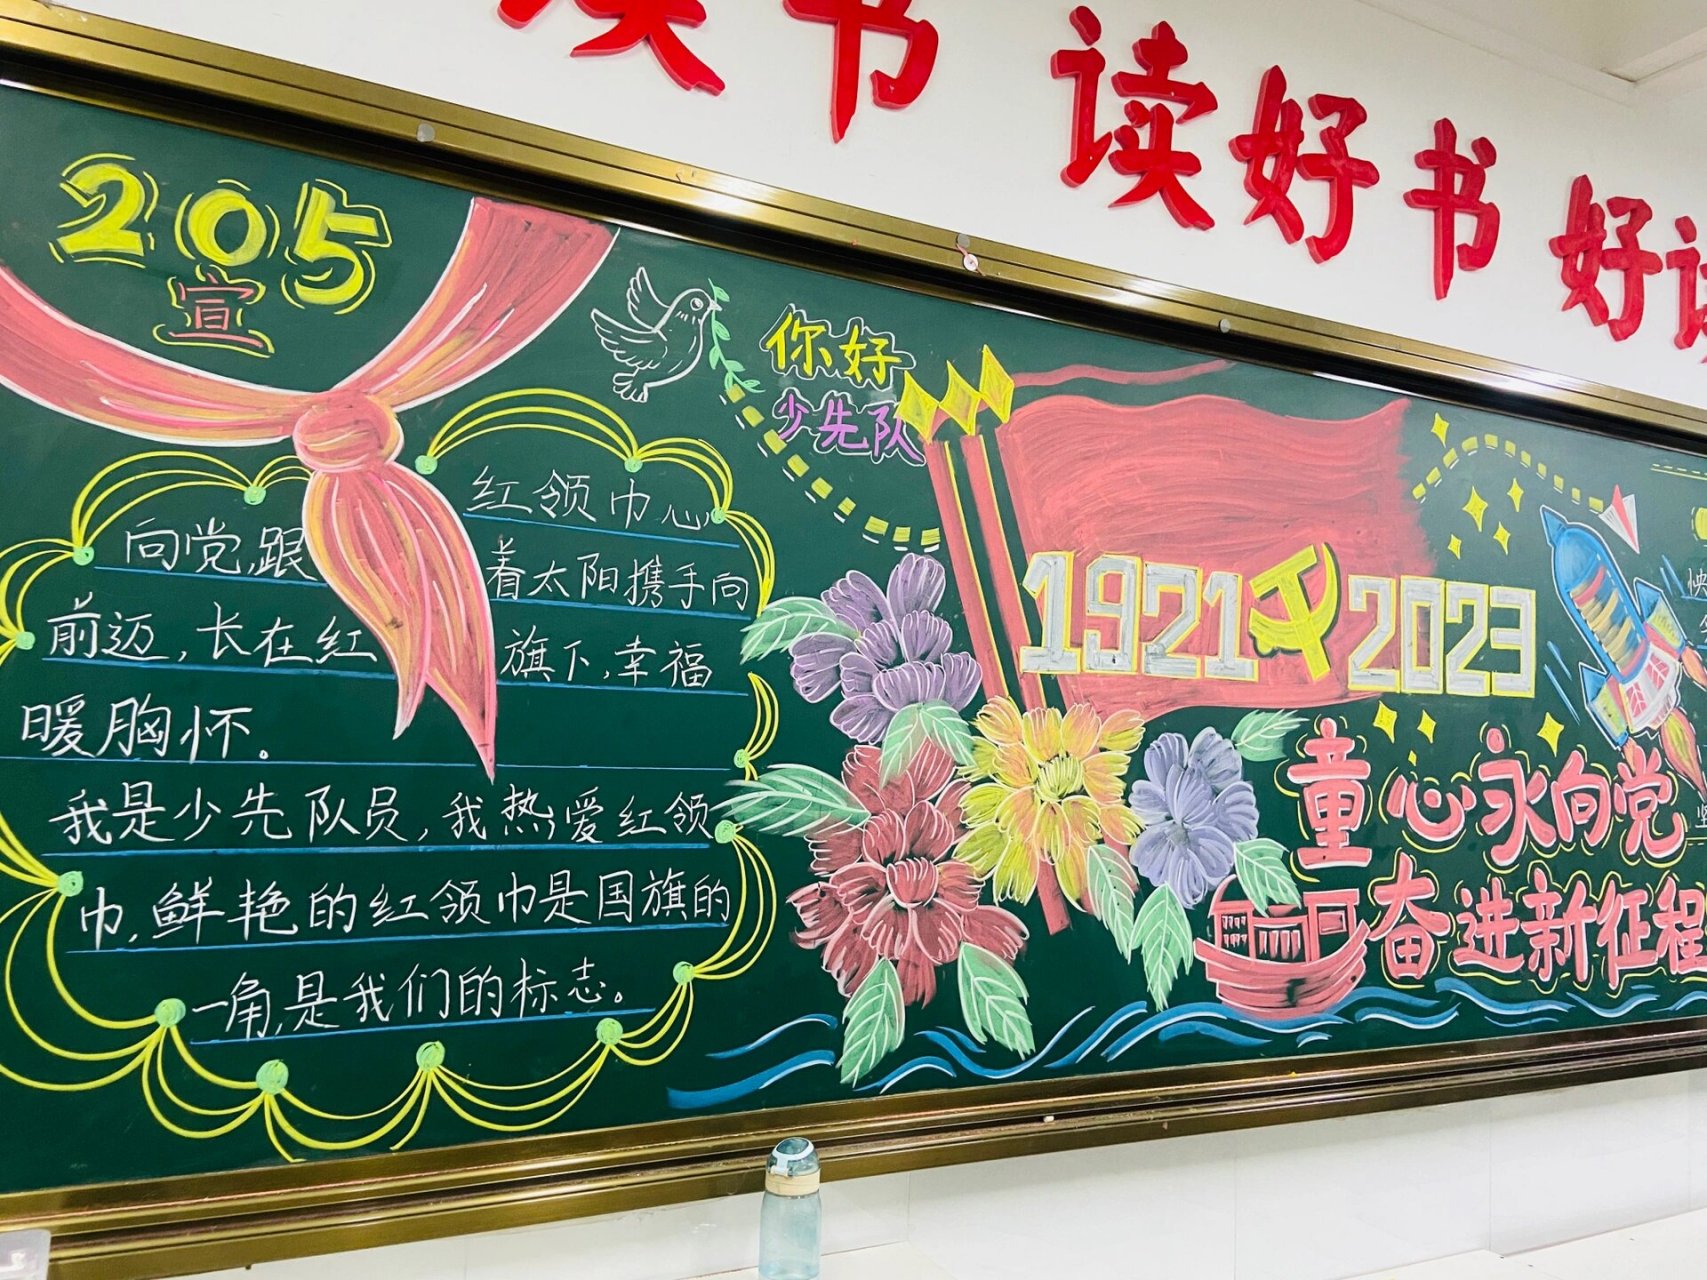 书 读好书 好
205
宣
你好
少先队
红领巾心
向党,跟着太阳携手向
前迈,长在红旗下,幸福
暖胸怀。
我是少先队员,我热爱红领
巾,鲜艳的红领巾是国旗的
一角,是我们的标志。
1921 2023
童心永向党
奋进新征程